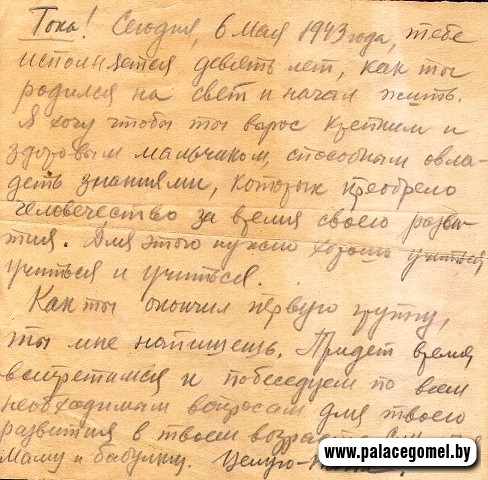 Тока! Сегодня, 6 мая 1943 года, тебе
исполняется девять лет, как ты
родился на свет и начал жить.
Я хочу чтобы ты вырос крепким и
здоровым мальчиком, способным овла-
деть знаниями, которых преобрело
человечество за время своего разви-
тия. Для этого нужно хорошо учиться,
учиться и учиться.
Как ты окончил первую группу,
ты мне напишешь. Придет время
встретимся и побеседуем по всем
необходимым вопросам для твоего
развития в твоем возрасте.
маму и бабушку. Целую
www.palacegomel.by